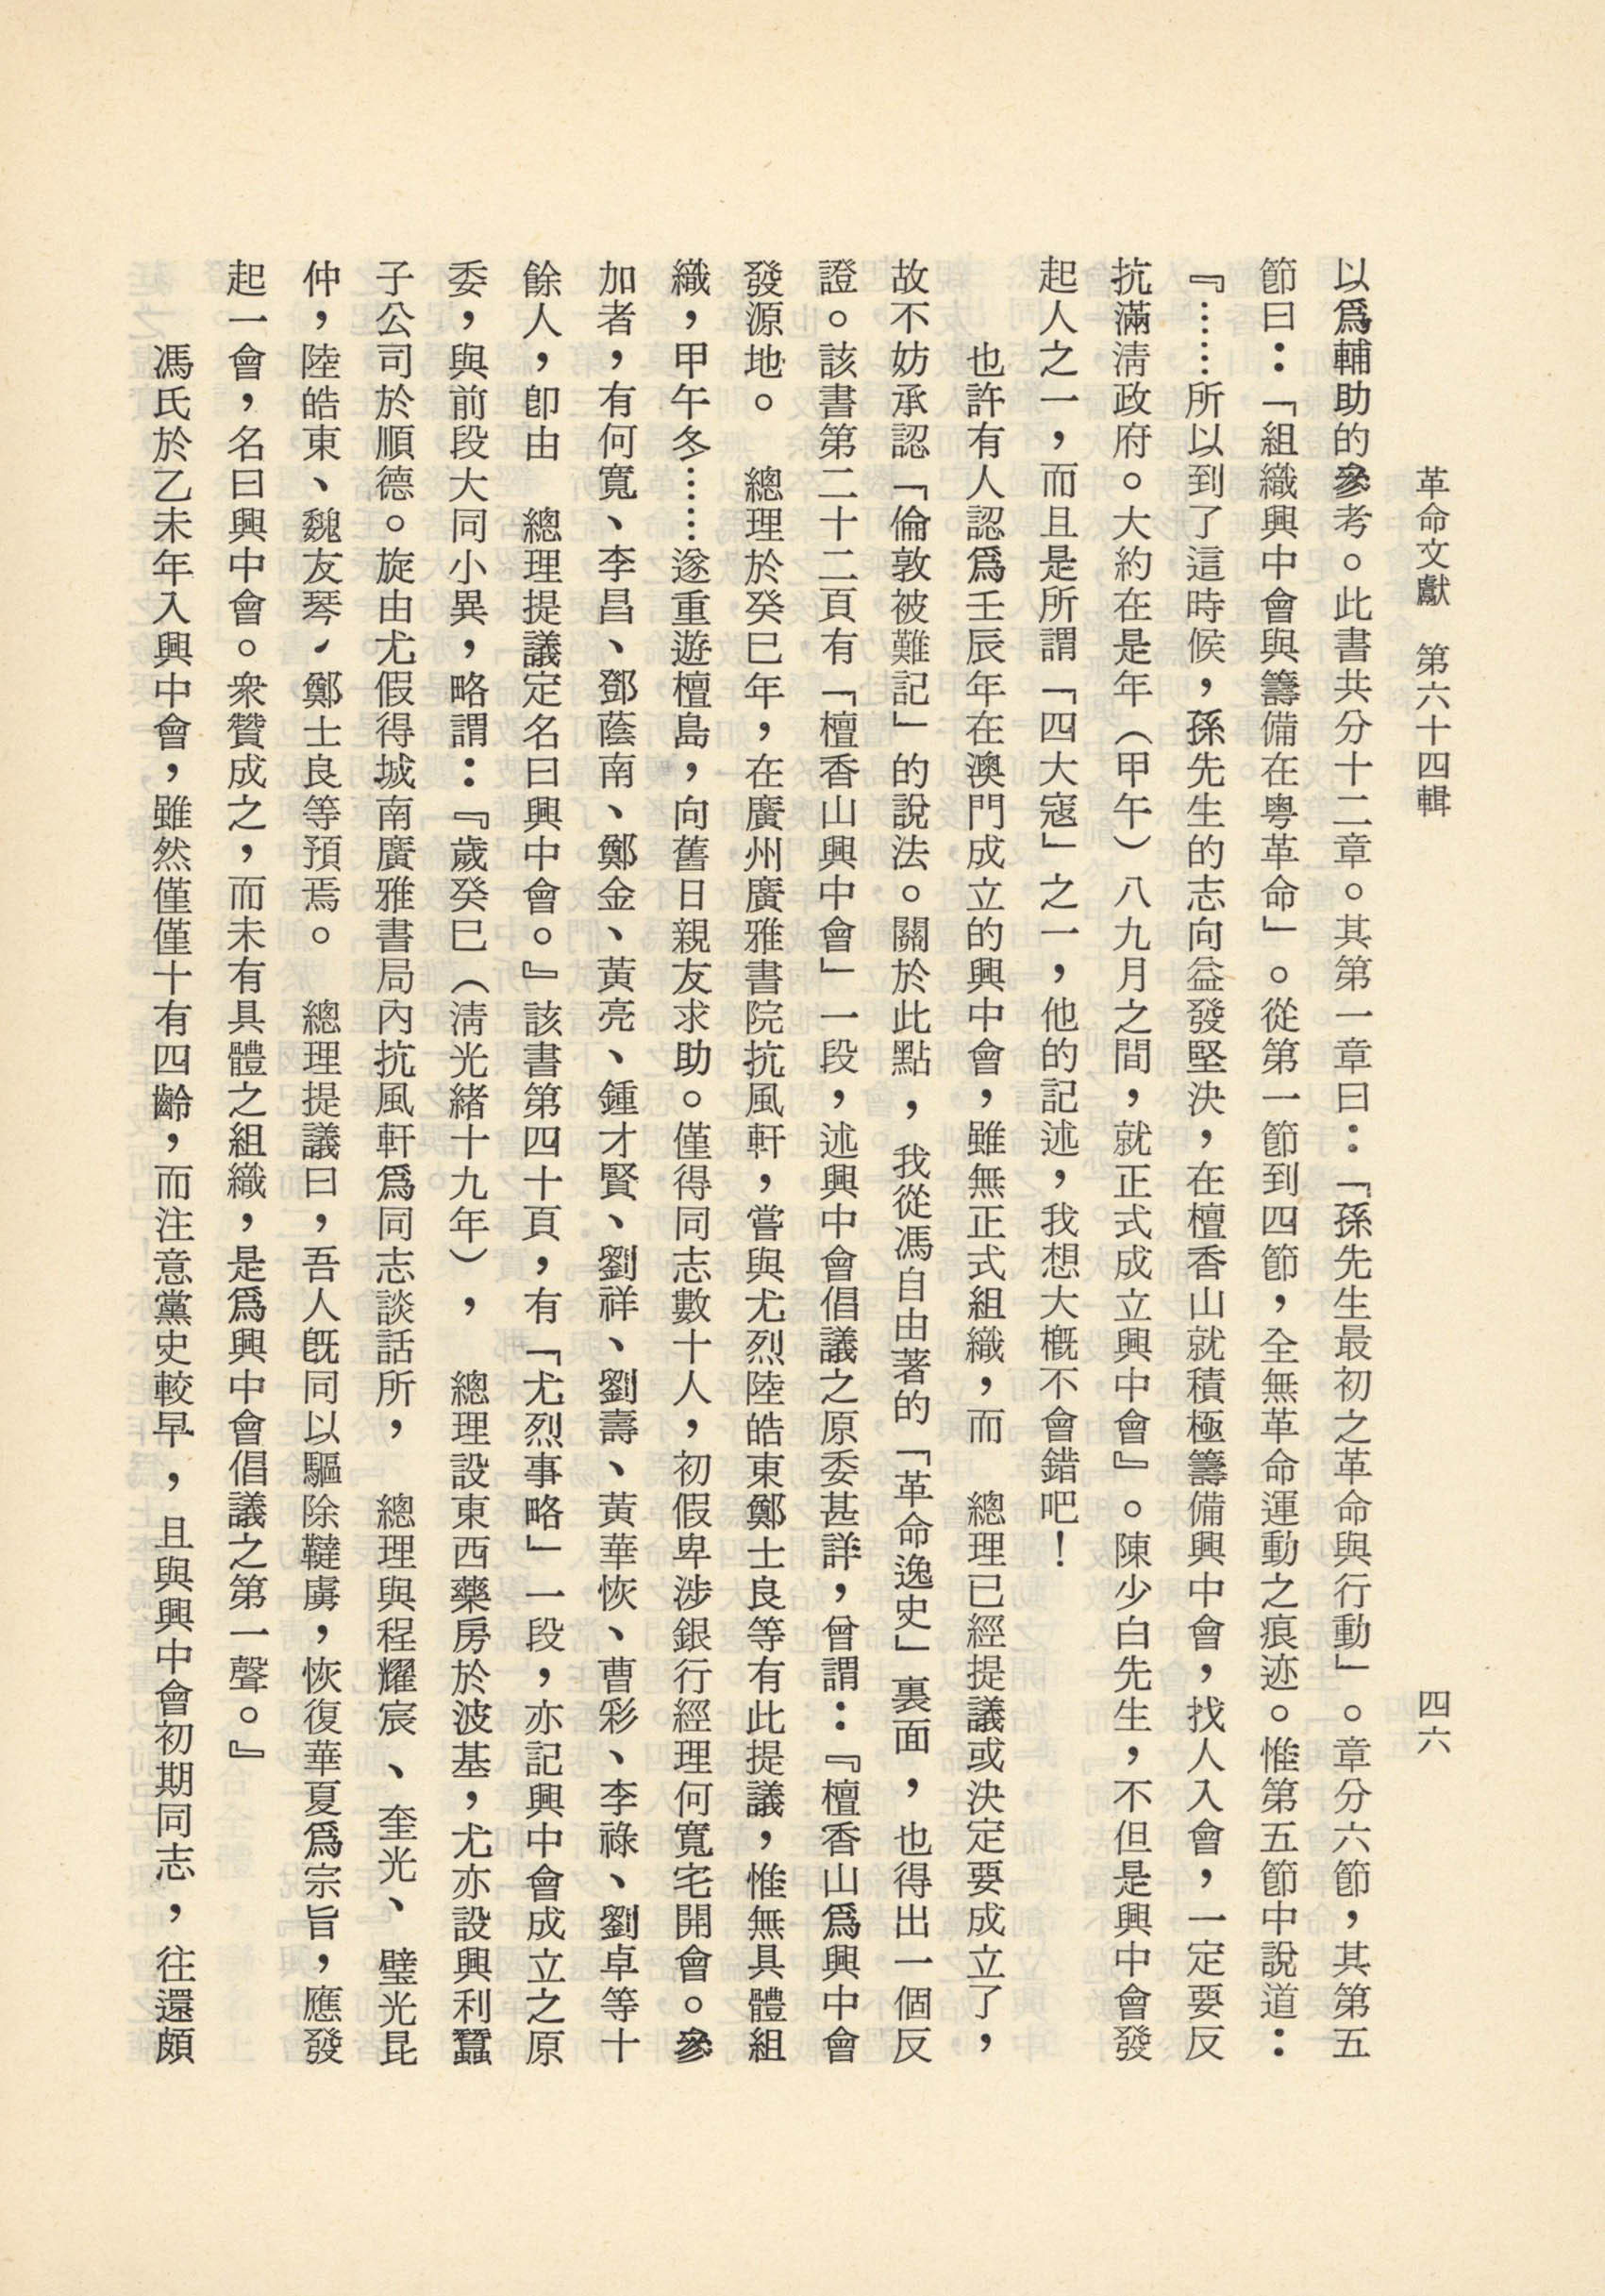 革命文獻　第六十四輯　四六
以爲輔助的參考。此書共分十二章。其第一章曰：「孫先生最初之革命與行動」。章分六節，其第五
節曰：「組織興中會與籌備在粤革命」。從第一節到四節，全無革命運動之痕迹。惟第五節中說道：
『……所以到了這時候，孫先生的志向益發堅決，在檀香山就積極籌備興中會，找人入會，一定要反
抗滿淸政府。大約在是年（甲午）八九月之間，就正式成立興中會』。陳少白先生，不但是興中會發
起人之一，而且是所謂「四大寇」之一，他的記述，我想大槪不會錯吧！
也許有人認爲壬辰年在澳門成立的興中會，雖無正式組織，而　總理已經提議或決定要成立了，
故不妨承認「倫敦被難記」的說法。關於此點，我從馮自由著的「革命逸史」裏面，也得出一個反
證。該書第二十二頁有「檀香山興中會」一段，述興中會倡議之原委甚詳，曾謂：『檀香山爲興中會
發源地。　總理於癸巳年，在廣州廣雅書院抗風軒，嘗與尤烈陸皓東鄭士良等有此提議，惟無具體組
織，甲午冬……遂重遊檀島，向舊日親友求助。僅得同志數十人，初假卑涉銀行經理何寬宅開會。參
加者，有何寬、李昌、鄧蔭南、鄭金、黃亮、鍾才賢、劉祥、劉壽、黃華恢、曹彩、李祿、劉卓等十
餘人，卽由　總理提議定名曰興中會。』該書第四十頁，有「尤烈事略」一段，亦記興中會成立之原
委，與前段大同小異，略謂：『歲癸巳（淸光緒十九年），　總理設東西藥房於波基，尤亦設興利蠶
子公司於順德。旋由尤假得城南廣雅書局內抗風軒爲同志談話所，　總理與程耀宸、奎光、璧光昆
仲，陸皓東、魏友琴、鄭士良等預焉。　總理提議曰，吾人旣同以驅除韃虜，恢復華夏爲宗旨，應發
起一會，名曰興中會。衆贊成之，而未有具體之組織，是爲興中會倡議之第一聲。』
馮氏於乙未年入興中會，雖然僅僅十有四齡，而注意黨史較早，且與興中會初期同志，往還頗